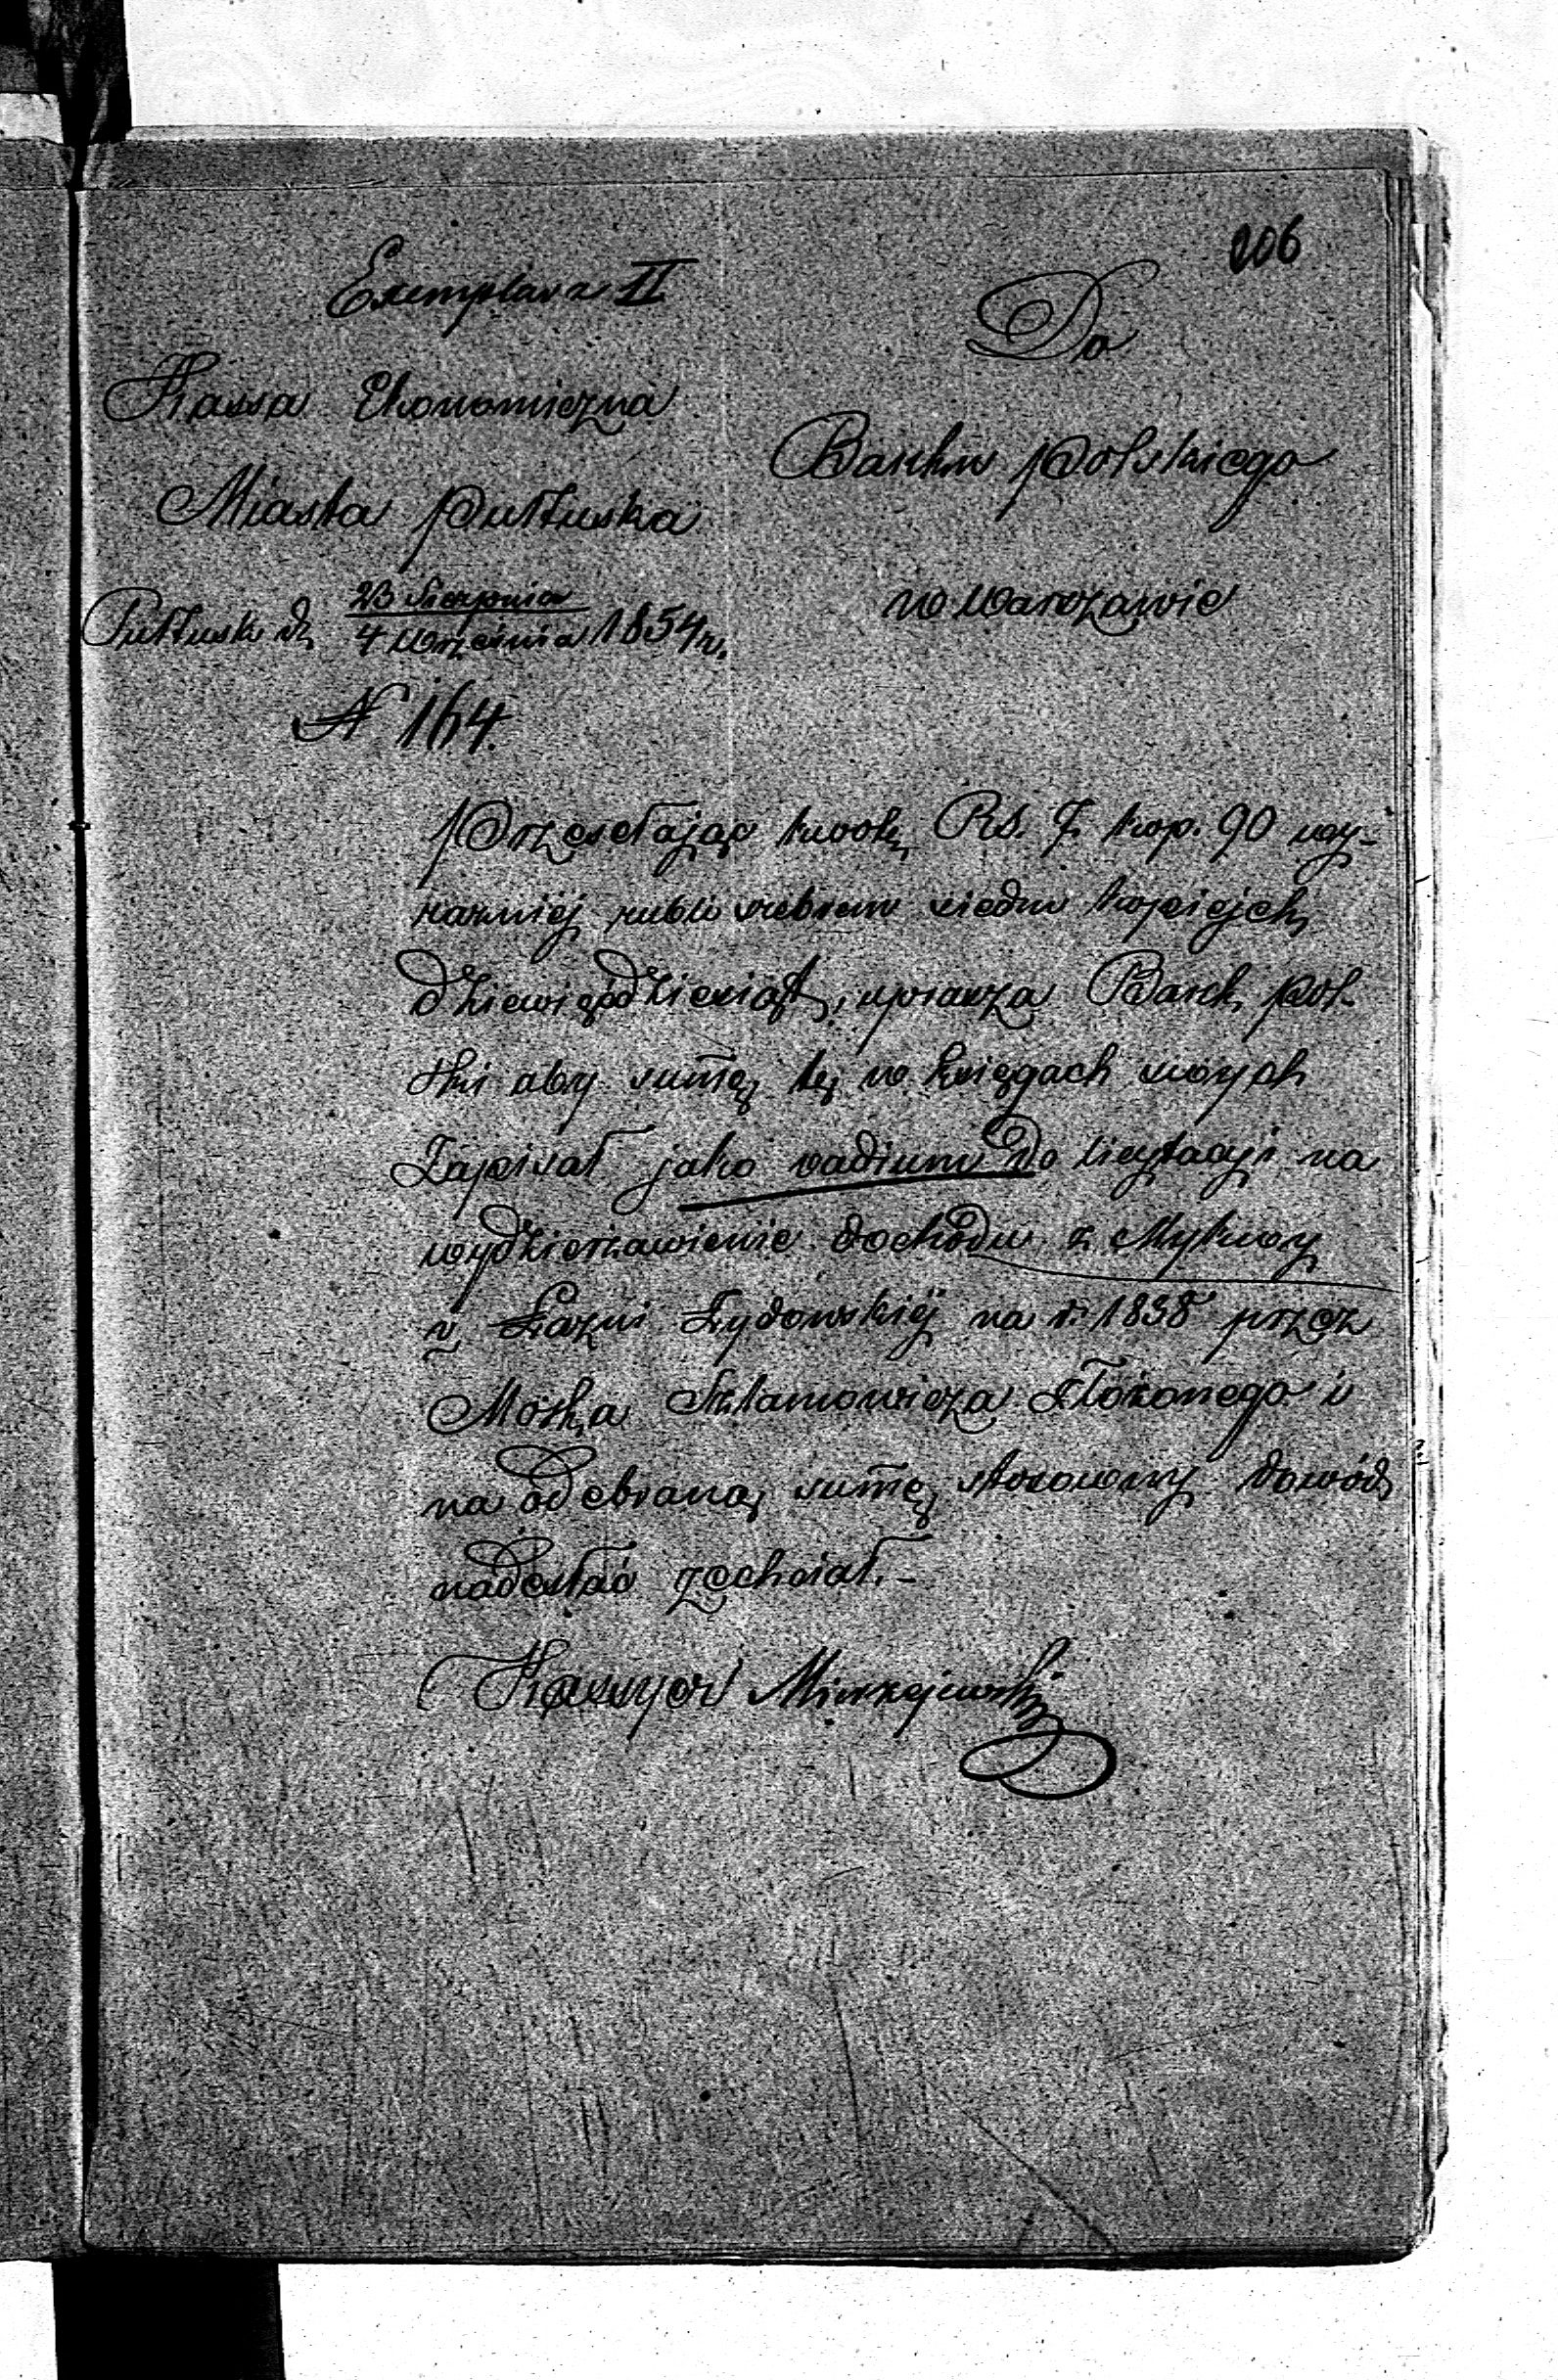 206
Exemplarz II
Kassa Ekonomiczna
Miasta Pułtuska
Pułtusk d. 23 Sierpnia
4 Września 1854 r.
N 164.
Do
Banku Polskiego
w Warszawie
Przesełając kwotę RS. 7. kop. 90 wy-
raźniej rubli srebrem siedm kopiejek
dziewięćdziesiąt, uprasza Bank Pol-
ski aby summę tę w księgach swoych
Zapisał jako vadium do licytacyi na
wydzierżawienie dochodu z Mykwy
v. Łaźni Żydowskiéj na r. 1858 przez
Moska złożonego i
na odebraną summę stosowny dowód
nadesłać zechciał. -
Kassyer